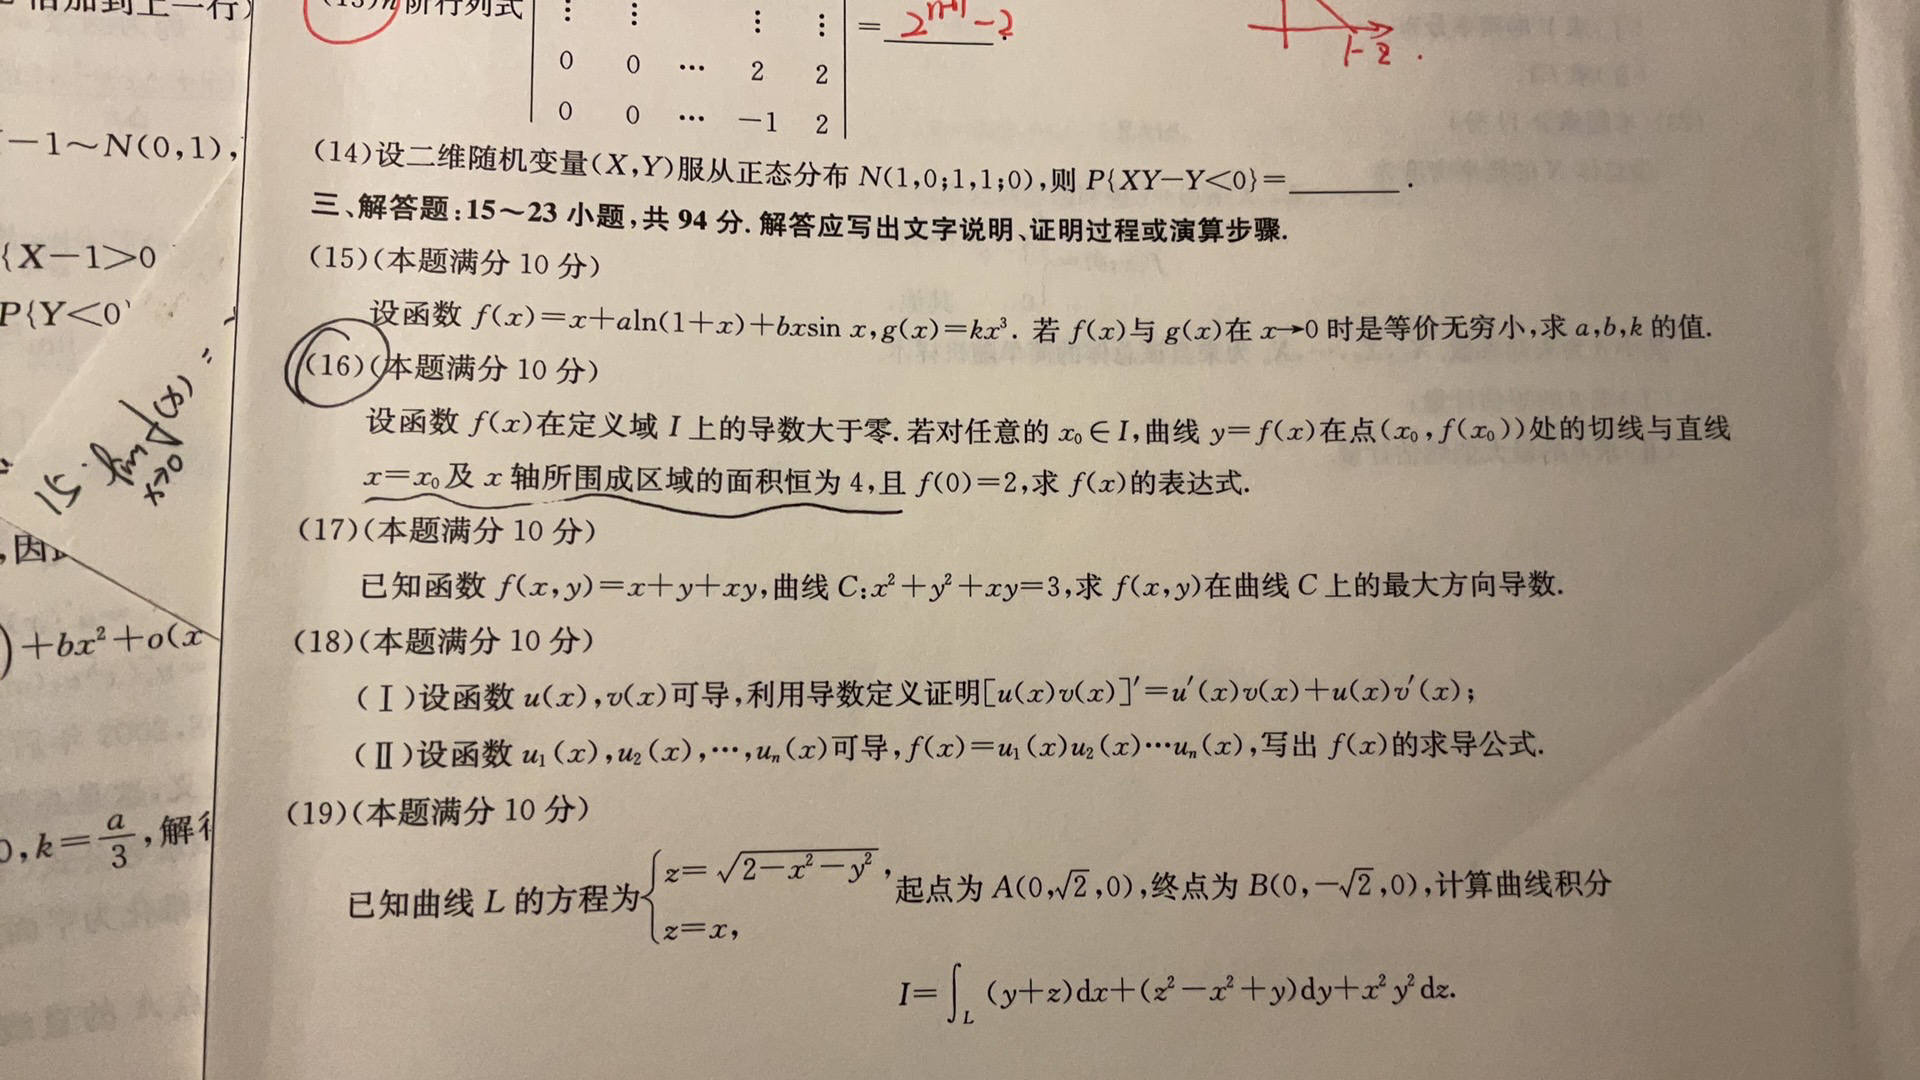 倍加到上一行)
(13)n阶行列式
⋮ ⋮ ⋮ ⋮
= 2ⁿ⁺¹-2 .
0 0 ⋯ 2 2
0 0 ⋯ -1 2
1-2 .
(14)设二维随机变量(X,Y)服从正态分布 N(1,0;1,1;0),则 P{XY-Y<0}=______.
三、解答题:15～23 小题,共 94 分. 解答应写出文字说明、证明过程或演算步骤.
(15)(本题满分 10 分)
设函数 f(x)=x+aln(1+x)+bxsin x,g(x)=kx³. 若 f(x)与 g(x)在 x→0 时是等价无穷小,求 a,b,k 的值.
(16)(本题满分 10 分)
设函数 f(x)在定义域 I 上的导数大于零. 若对任意的 x₀∈I,曲线 y=f(x)在点(x₀,f(x₀))处的切线与直线
x=x₀及 x 轴所围成区域的面积恒为 4,且 f(0)=2,求 f(x)的表达式.
(17)(本题满分 10 分)
已知函数 f(x,y)=x+y+xy,曲线 C:x²+y²+xy=3,求 f(x,y)在曲线 C 上的最大方向导数.
(18)(本题满分 10 分)
(Ⅰ)设函数 u(x),v(x)可导,利用导数定义证明[u(x)v(x)]′=u′(x)v(x)+u(x)v′(x);
(Ⅱ)设函数 u₁(x),u₂(x),⋯,uₙ(x)可导,f(x)=u₁(x)u₂(x)⋯uₙ(x),写出 f(x)的求导公式.
(19)(本题满分 10 分)
已知曲线 L 的方程为{z=√(2-x²-y²), z=x, 起点为 A(0,√2,0),终点为 B(0,-√2,0),计算曲线积分
I=∫_L (y+z)dx+(z²-x²+y)dy+x²y²dz.
-1～N(0,1),
{X-1>0
P{Y<0
,因
)+bx²+o(x
0,k=a/3,解得